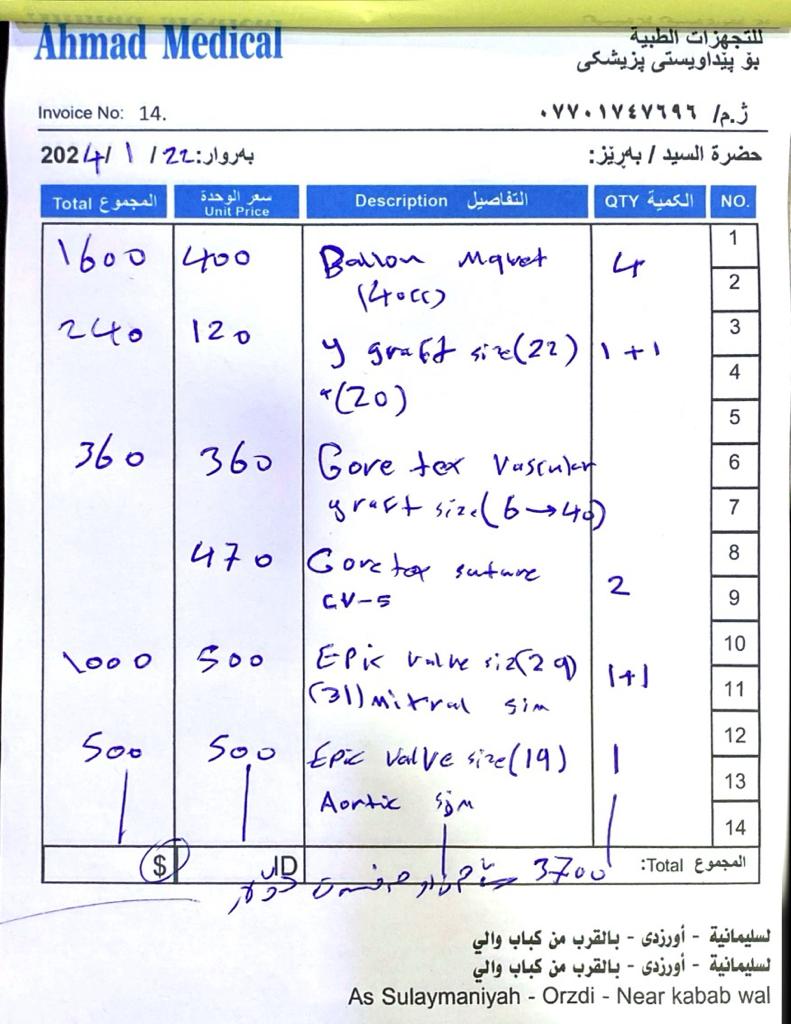 Ahmad Medical
للتجهزات الطبية
بۆ پێداویستی پزیشکی
Invoice No: 14.
ژ.م/ ٠٧٧٠١٧٤٧٦٩٦
2024/1/22 بەروار:
حضرة السيد / بەڕێز:
المجموع Total سعر الوحدة Unit Price Description التفاصيل QTY الكمية NO.
1600 400 Ballon Maquet 4
(40cc)
240 120 y graft size(22) 1+1
(20)
360 360 Gore tex Vascular
graft size(6→40)
470 Goretex suture 2
CV-5
1000 500 Epic valve siz(29) 1+1
(31) mitral sjm
500 500 Epic Valve size(19) 1
Aortic sjm
1
2
3
4
5
6
7
8
9
10
11
12
13
14
$ ID 3700 المجموع Total:
لسليمانية - أورزدى - بالقرب من كباب والي
لسليمانية - أورزدى - بالقرب من كباب والي
As Sulaymaniyah - Orzdi - Near kabab wal